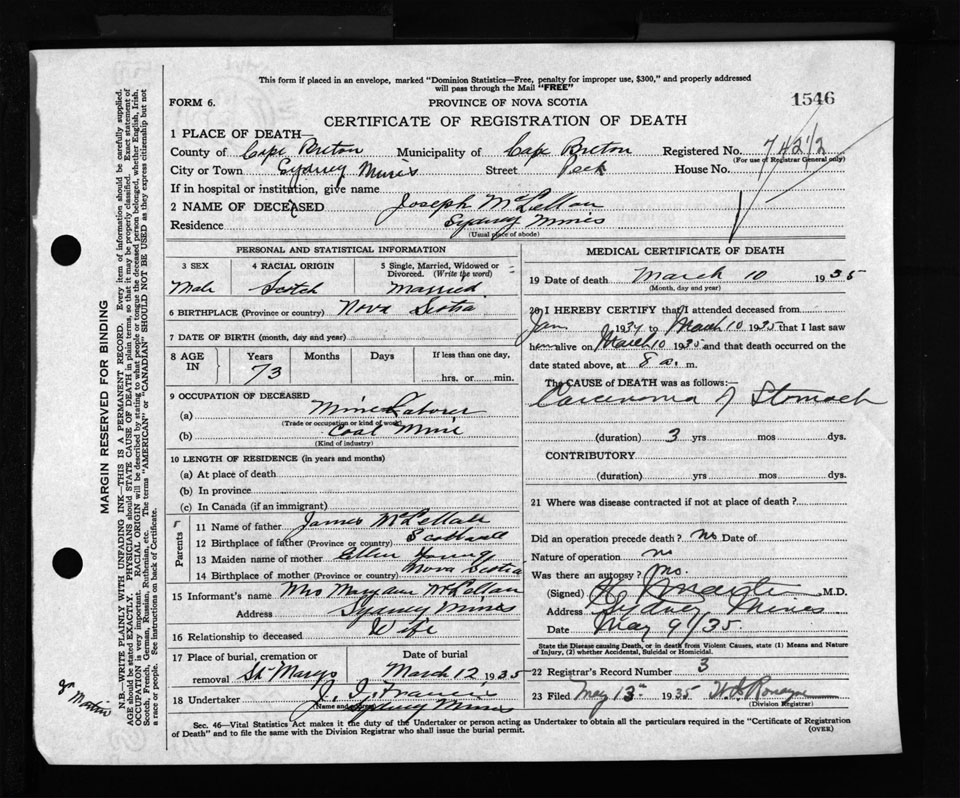 This form if placed in an envelope, marked "Dominion Statistics—Free, penalty for improper use, $300," and properly addressed
will pass through the Mail "FREE"
FORM 6.
PROVINCE OF NOVA SCOTIA
1546
CERTIFICATE OF REGISTRATION OF DEATH
1 PLACE OF DEATH—
County of Cape Breton Municipality of Cape Breton Registered No. 742 1/2
(For use of Registrar General only)
City or Town Sydney Mines Street Peck House No.
If in hospital or institution, give name
2 NAME OF DECEASED Joseph McLellan
Residence Sydney Mines
(Usual place of abode)
PERSONAL AND STATISTICAL INFORMATION
3 SEX 4 RACIAL ORIGIN 5 Single, Married, Widowed or
Divorced. (Write the word)
Male Scotch Married
6 BIRTHPLACE (Province or country) Nova Scotia
7 DATE OF BIRTH (month, day and year)
8 AGE IN Years Months Days If less than one day,
73 hrs. or min.
9 OCCUPATION OF DECEASED
(a) Mine Laborer
(Trade or occupation or kind of work)
(b) Coal Mine
(Kind of industry)
10 LENGTH OF RESIDENCE (in years and months)
(a) At place of death
(b) In province
(c) In Canada (if an immigrant)
Parents
11 Name of father James McLellan
12 Birthplace of father (Province or country) Scotland
13 Maiden name of mother Ellen Young
14 Birthplace of mother (Province or country) Nova Scotia
15 Informant's name Mrs Maryann McLellan
Address Sydney Mines
16 Relationship to deceased Wife
17 Place of burial, cremation or Date of burial
removal St Marys March 12 1935
18 Undertaker J. J. Francis
(Name and address)
Sydney Mines
MEDICAL CERTIFICATE OF DEATH
19 Date of death March 10 1935
(Month, day and year)
20 I HEREBY CERTIFY that I attended deceased from
Jan 1934 to March 10 1935 that I last saw
h alive on March 10 1935 and that death occurred on the
date stated above, at 8 a. m.
The CAUSE of DEATH was as follows:—
Carcinoma of Stomach
(duration) 3 yrs mos dys.
CONTRIBUTORY
(duration) yrs mos dys.
21 Where was disease contracted if not at place of death?
Did an operation precede death? no Date of
Nature of operation no
Was there an autopsy? No.
(Signed) M.D.
Address Sydney Mines
Date May 9/35
State the Disease causing Death, or in death from Violent Causes, state (1) Means and Nature
of Injury, (2) whether Accidental, Suicidal or Homicidal.
22 Registrar's Record Number 3
23 Filed May 13th 1935
(Division Registrar)
Sec. 46—Vital Statistics Act makes it the duty of the Undertaker or person acting as Undertaker to obtain all the particulars required in the "Certificate of Registration
of Death" and to file the same with the Division Registrar who shall issue the burial permit.
(OVER)
MARGIN RESERVED FOR BINDING
N.B.—WRITE PLAINLY WITH UNFADING INK—THIS IS A PERMANENT RECORD. Every item of information should be carefully supplied.
AGE should be stated EXACTLY. PHYSICIANS should STATE CAUSE OF DEATH in plain terms, so that it may be properly classified. Exact statement of
OCCUPATION is very important. RACIAL ORIGIN will be described by stating to what people or tongue the deceased person belonged, whether English, Irish,
Scotch, French, German, Russian, Ruthenian, etc. The terms "AMERICAN" or "CANADIAN" SHOULD NOT BE USED as they express citizenship but not
a race or people. See instructions on back of Certificate.
Martin